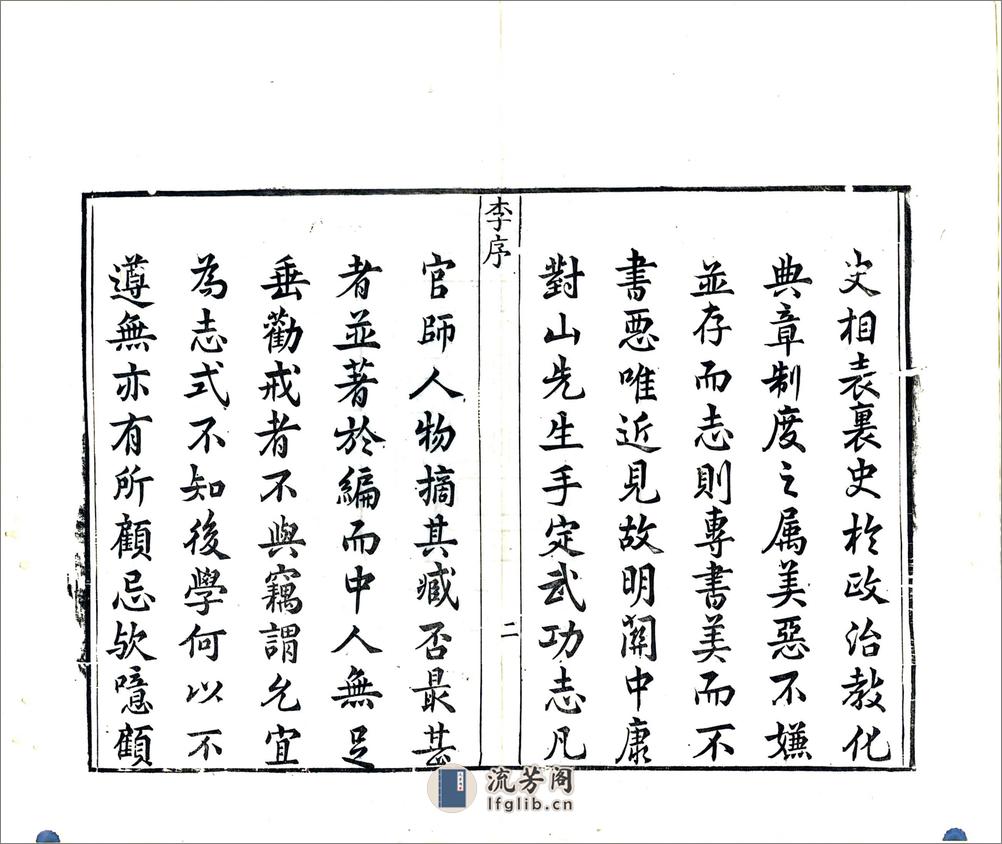 史相表裏史於政治教化
典章制度之属美惡不嫌
並存而志則專書美而不
書惡唯近見故明關中康
對山先生手定武功志凡
李序
二
官師人物摘其臧否最甚
者並著於編而中人無足
垂勸戒者不與竊謂允宜
為志式不知後學何以不
遵無亦有所顧忌欤噫顧
流芳阁
lfglib.cn